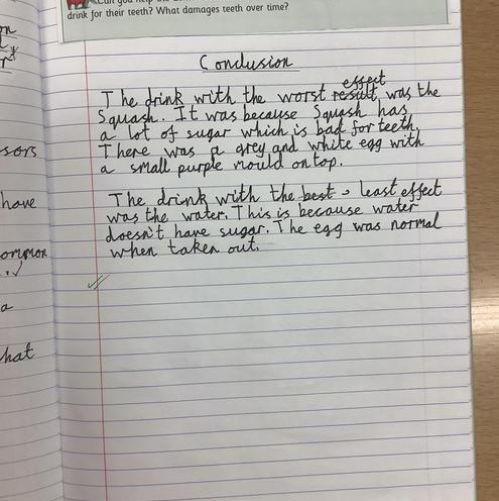 Can you help the
drink for their teeth? What damages teeth over time?
Conclusion
effect
The drink with the worst result was the
Squash. It was because Squash has
a lot of sugar which is bad for teeth.
There was a grey and white egg with
a small purple mould on top.
The drink with the best least effect
was the water. This is because water
doesn't have sugar. The egg was normal
when taken out.
on
sors
have
ommon
a
hat